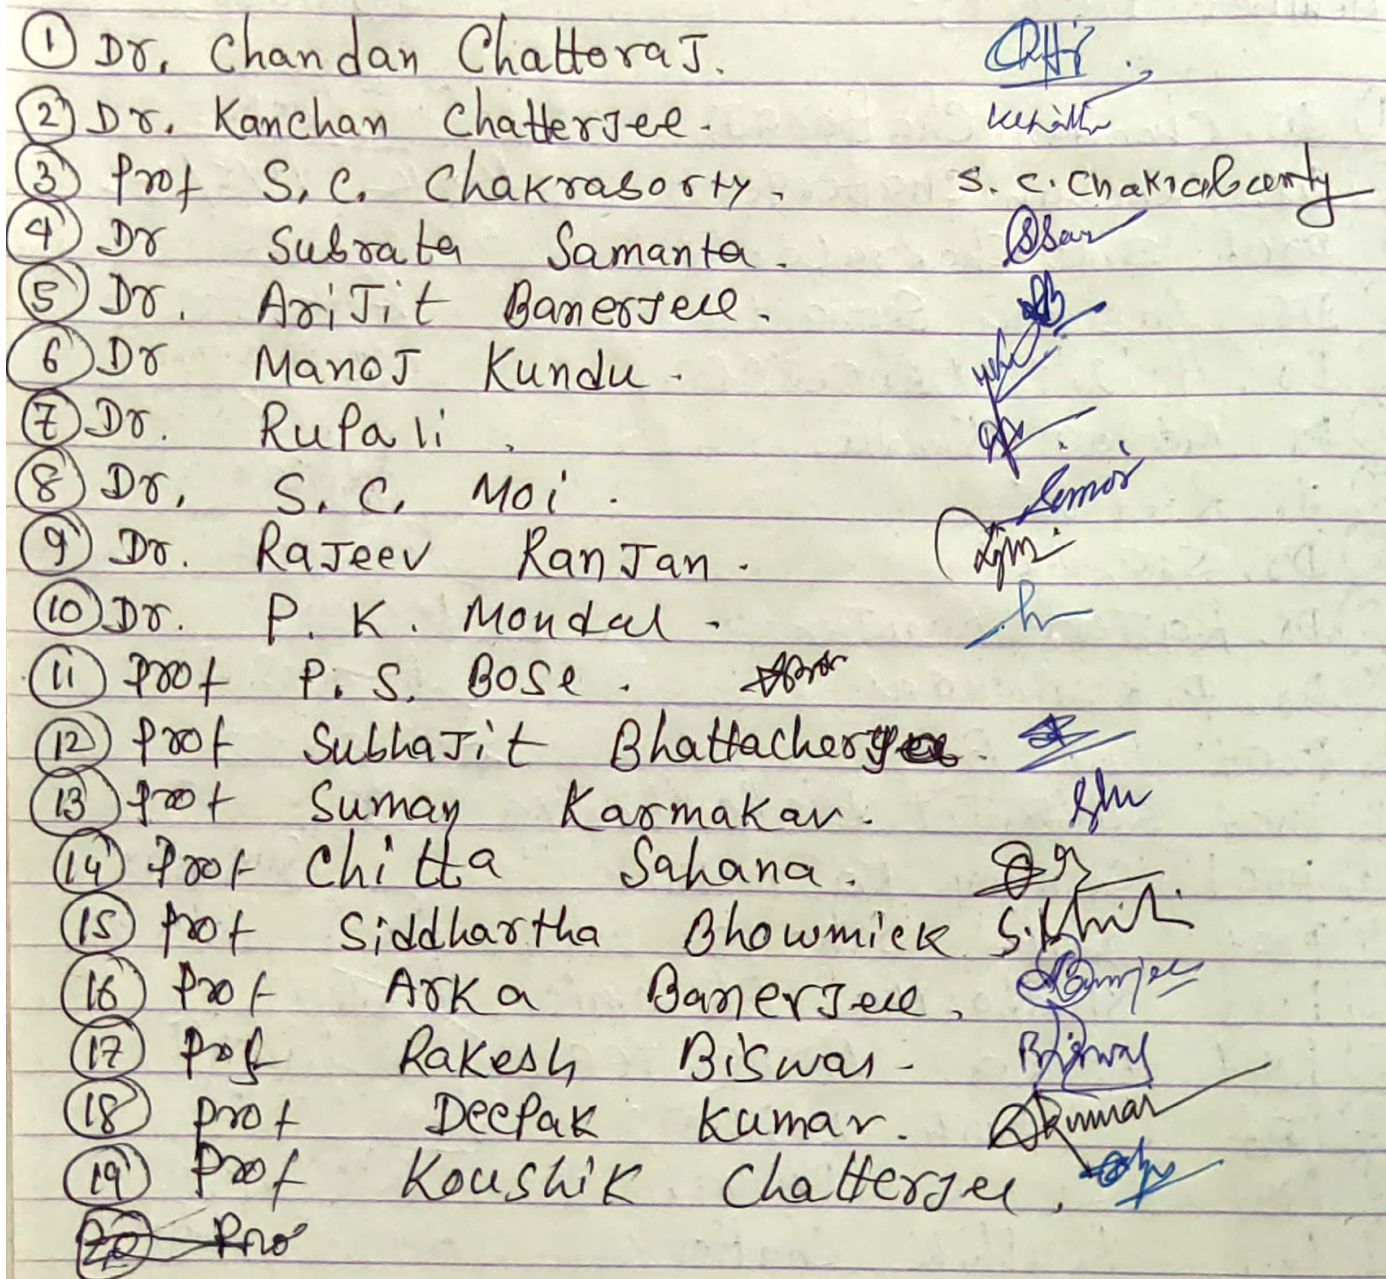 1 Dr. Chandan Chattoraj.
2 Dr. Kanchan Chatterjee.
3 Prof S. C. Chakraborty. S. C. Chakraborty
4 Dr Subrata Samanta.
5 Dr. Arijit Banerjee.
6 Dr Manoj Kundu.
7 Dr. Rupali.
8 Dr. S. C. Moi. Scmoi
9 Dr. Rajeev Ranjan.
10 Dr. P. K. Mondal.
11 Prof P. S. Bose.
12 Prof Subhajit Bhattacherjee.
13 Prof Suman Karmakar.
14 Prof Chitta Sahana.
15 Prof Siddhartha Bhowmick
16 Prof Arka Banerjee. Banerjee
17 Prof Rakesh Biswas. Biswas
18 Prof Deepak Kumar. DKumar
19 Prof Koushik Chatterjee.
20 Pro